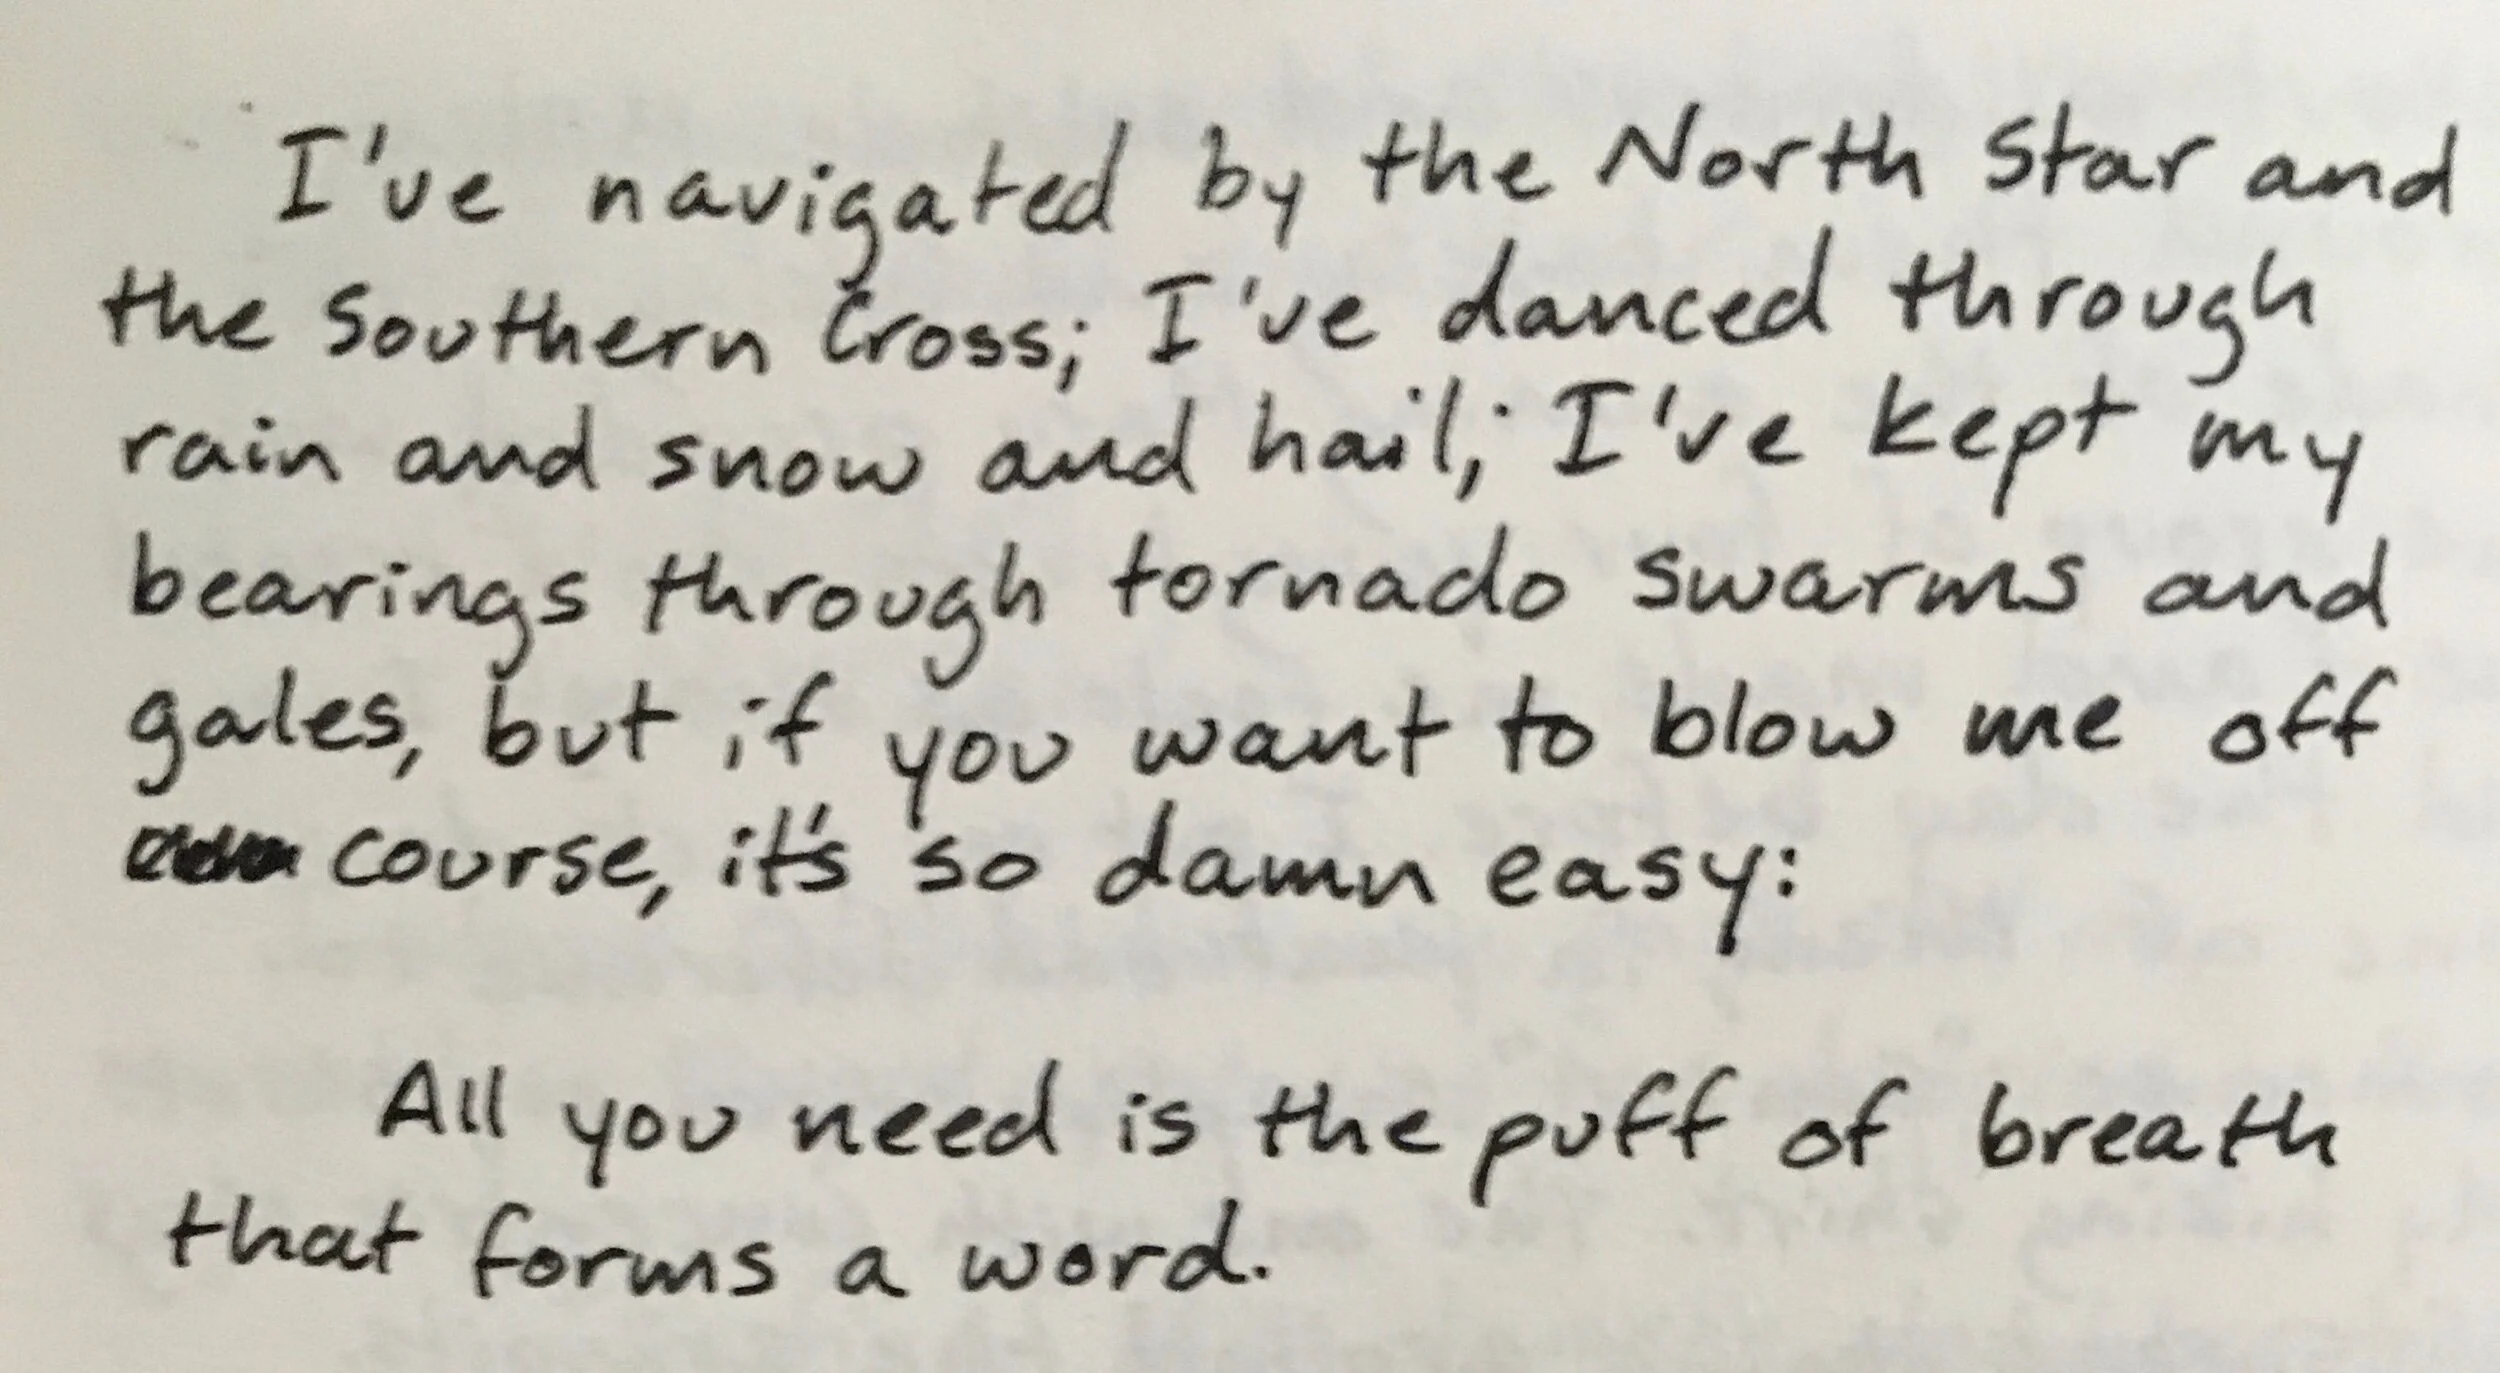 I've navigated by the North Star and
the Southern Cross; I've danced through
rain and snow and hail; I've kept my
bearings through tornado swarms and
gales, but if you want to blow me off
course, it's so damn easy:
All you need is the puff of breath
that forms a word.